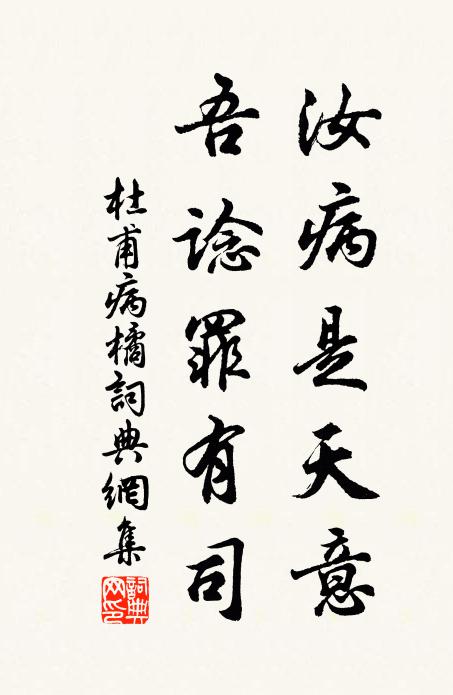 汝病是天意
吾諗罪有司
杜甫病橘詞典網集
詞典網印